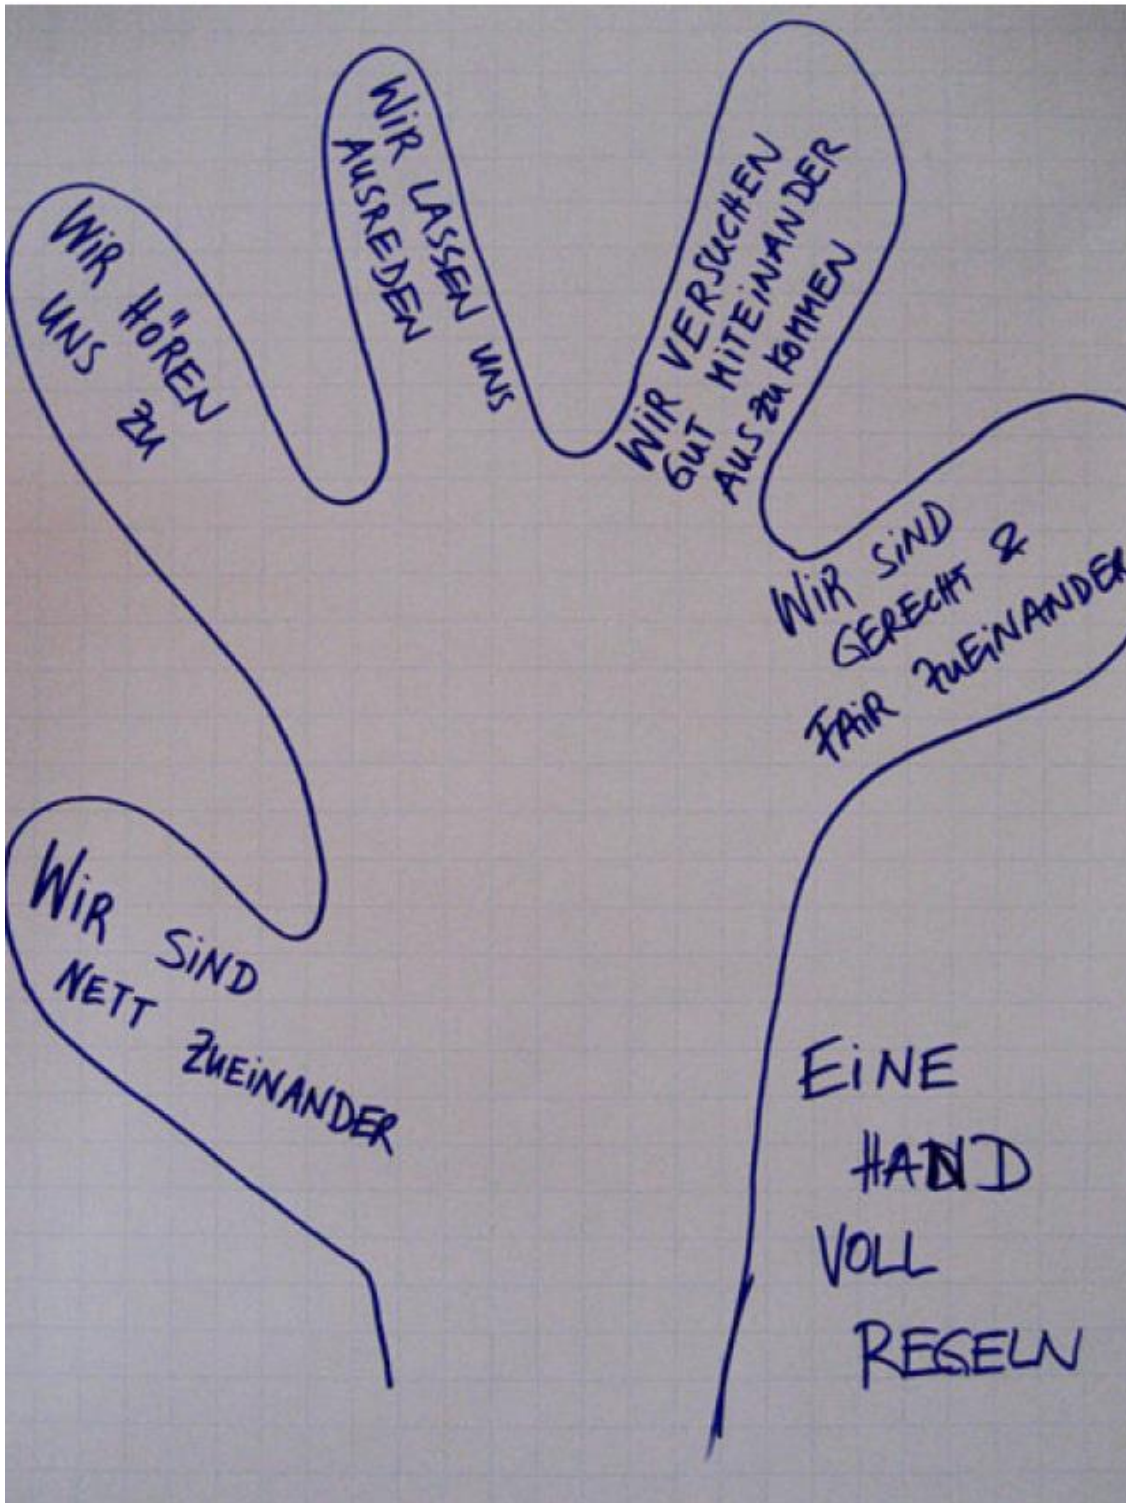 WIR LASSEN UNS
AUSREDEN
WIR VERSUCHEN
GUT MITEINANDER
AUSZUKOMMEN
WIR HÖREN
UNS ZU
WIR SIND
GERECHT &
FAIR ZUEINANDER
WIR SIND
NETT ZUEINANDER
EINE
HAND
VOLL
REGELN